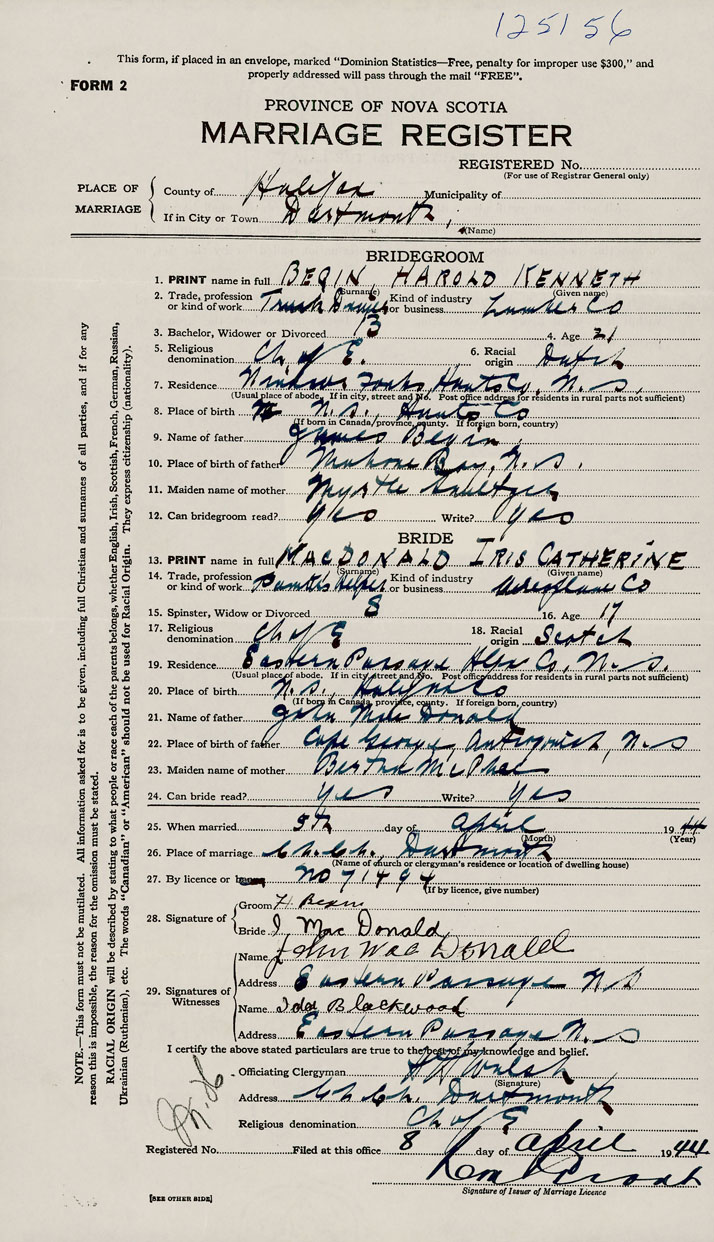 125156
This form, if placed in an envelope, marked "Dominion Statistics—Free, penalty for improper use $300," and
properly addressed will pass through the mail "FREE".
FORM 2
PROVINCE OF NOVA SCOTIA
MARRIAGE REGISTER
REGISTERED No.
(For use of Registrar General only)
PLACE OF MARRIAGE
County of Halifax Municipality of
If in City or Town Dartmouth,
(Name)
BRIDEGROOM
1. PRINT name in full BEGIN, HAROLD KENNETH
(Surname) (Given name)
2. Trade, profession or kind of work Truck Driver Kind of industry or business Lumber Co
3. Bachelor, Widower or Divorced B 4. Age 21
5. Religious denomination Ch of E. 6. Racial origin Dutch
7. Residence Windsor Forks, Hants Co, N. S.
(Usual place of abode. If in city, street and No. Post office address for residents in rural parts not sufficient)
8. Place of birth N. S., Hants Co
(If born in Canada, province, county. If foreign born, country)
9. Name of father James Begin
10. Place of birth of father Mahone Bay, N. S.
11. Maiden name of mother Myrtle
12. Can bridegroom read? yes Write? yes
BRIDE
13. PRINT name in full MACDONALD IRIS CATHERINE
(Surname) (Given name)
14. Trade, profession or kind of work Helper Kind of industry or business Aeroplane Co
15. Spinster, Widow or Divorced S 16. Age 17
17. Religious denomination Ch of E 18. Racial origin Scotch
19. Residence Eastern Passage Hfx Co, N. S.
(Usual place of abode. If in city street and No. Post office address for residents in rural parts not sufficient)
20. Place of birth N. S., Halifax Co
(If born in Canada, province, county. If foreign born, country)
21. Name of father John Donald
22. Place of birth of father Cape George, Antigonish, N. S
23. Maiden name of mother Bertha McPhee
24. Can bride read? yes Write? yes
25. When married 5th day of April 1944
(Month) (Year)
26. Place of marriage Ch. Ch., Dartmouth
(Name of church or clergyman's residence or location of dwelling house)
27. By licence or banns No 71494
(If by licence, give number)
28. Signature of
Groom H Begin
Bride I. Mac Donald
29. Signatures of Witnesses
Name John Mac Donald
Address Eastern Passage N S
Name Ida Blackwood
Address Eastern Passage N. S
I certify the above stated particulars are true to the best of my knowledge and belief.
Officiating Clergyman Walsh
(Signature)
Address Ch. Ch. Dartmouth
Religious denomination Ch of E
Registered No. Filed at this office 8 day of April 1944
Signature of Issuer of Marriage Licence
[SEE OTHER SIDE]
NOTE.—This form must not be mutilated. All information asked for is to be given, including full Christian and surnames of all parties, and if for any
reason this is impossible, the reason for the omission must be stated.
RACIAL ORIGIN will be described by stating to what people or race each of the parents belongs, whether English, Irish, Scottish, French, German, Russian,
Ukrainian (Ruthenian), etc. The words "Canadian" or "American" should not be used for Racial Origin. They express citizenship (nationality).